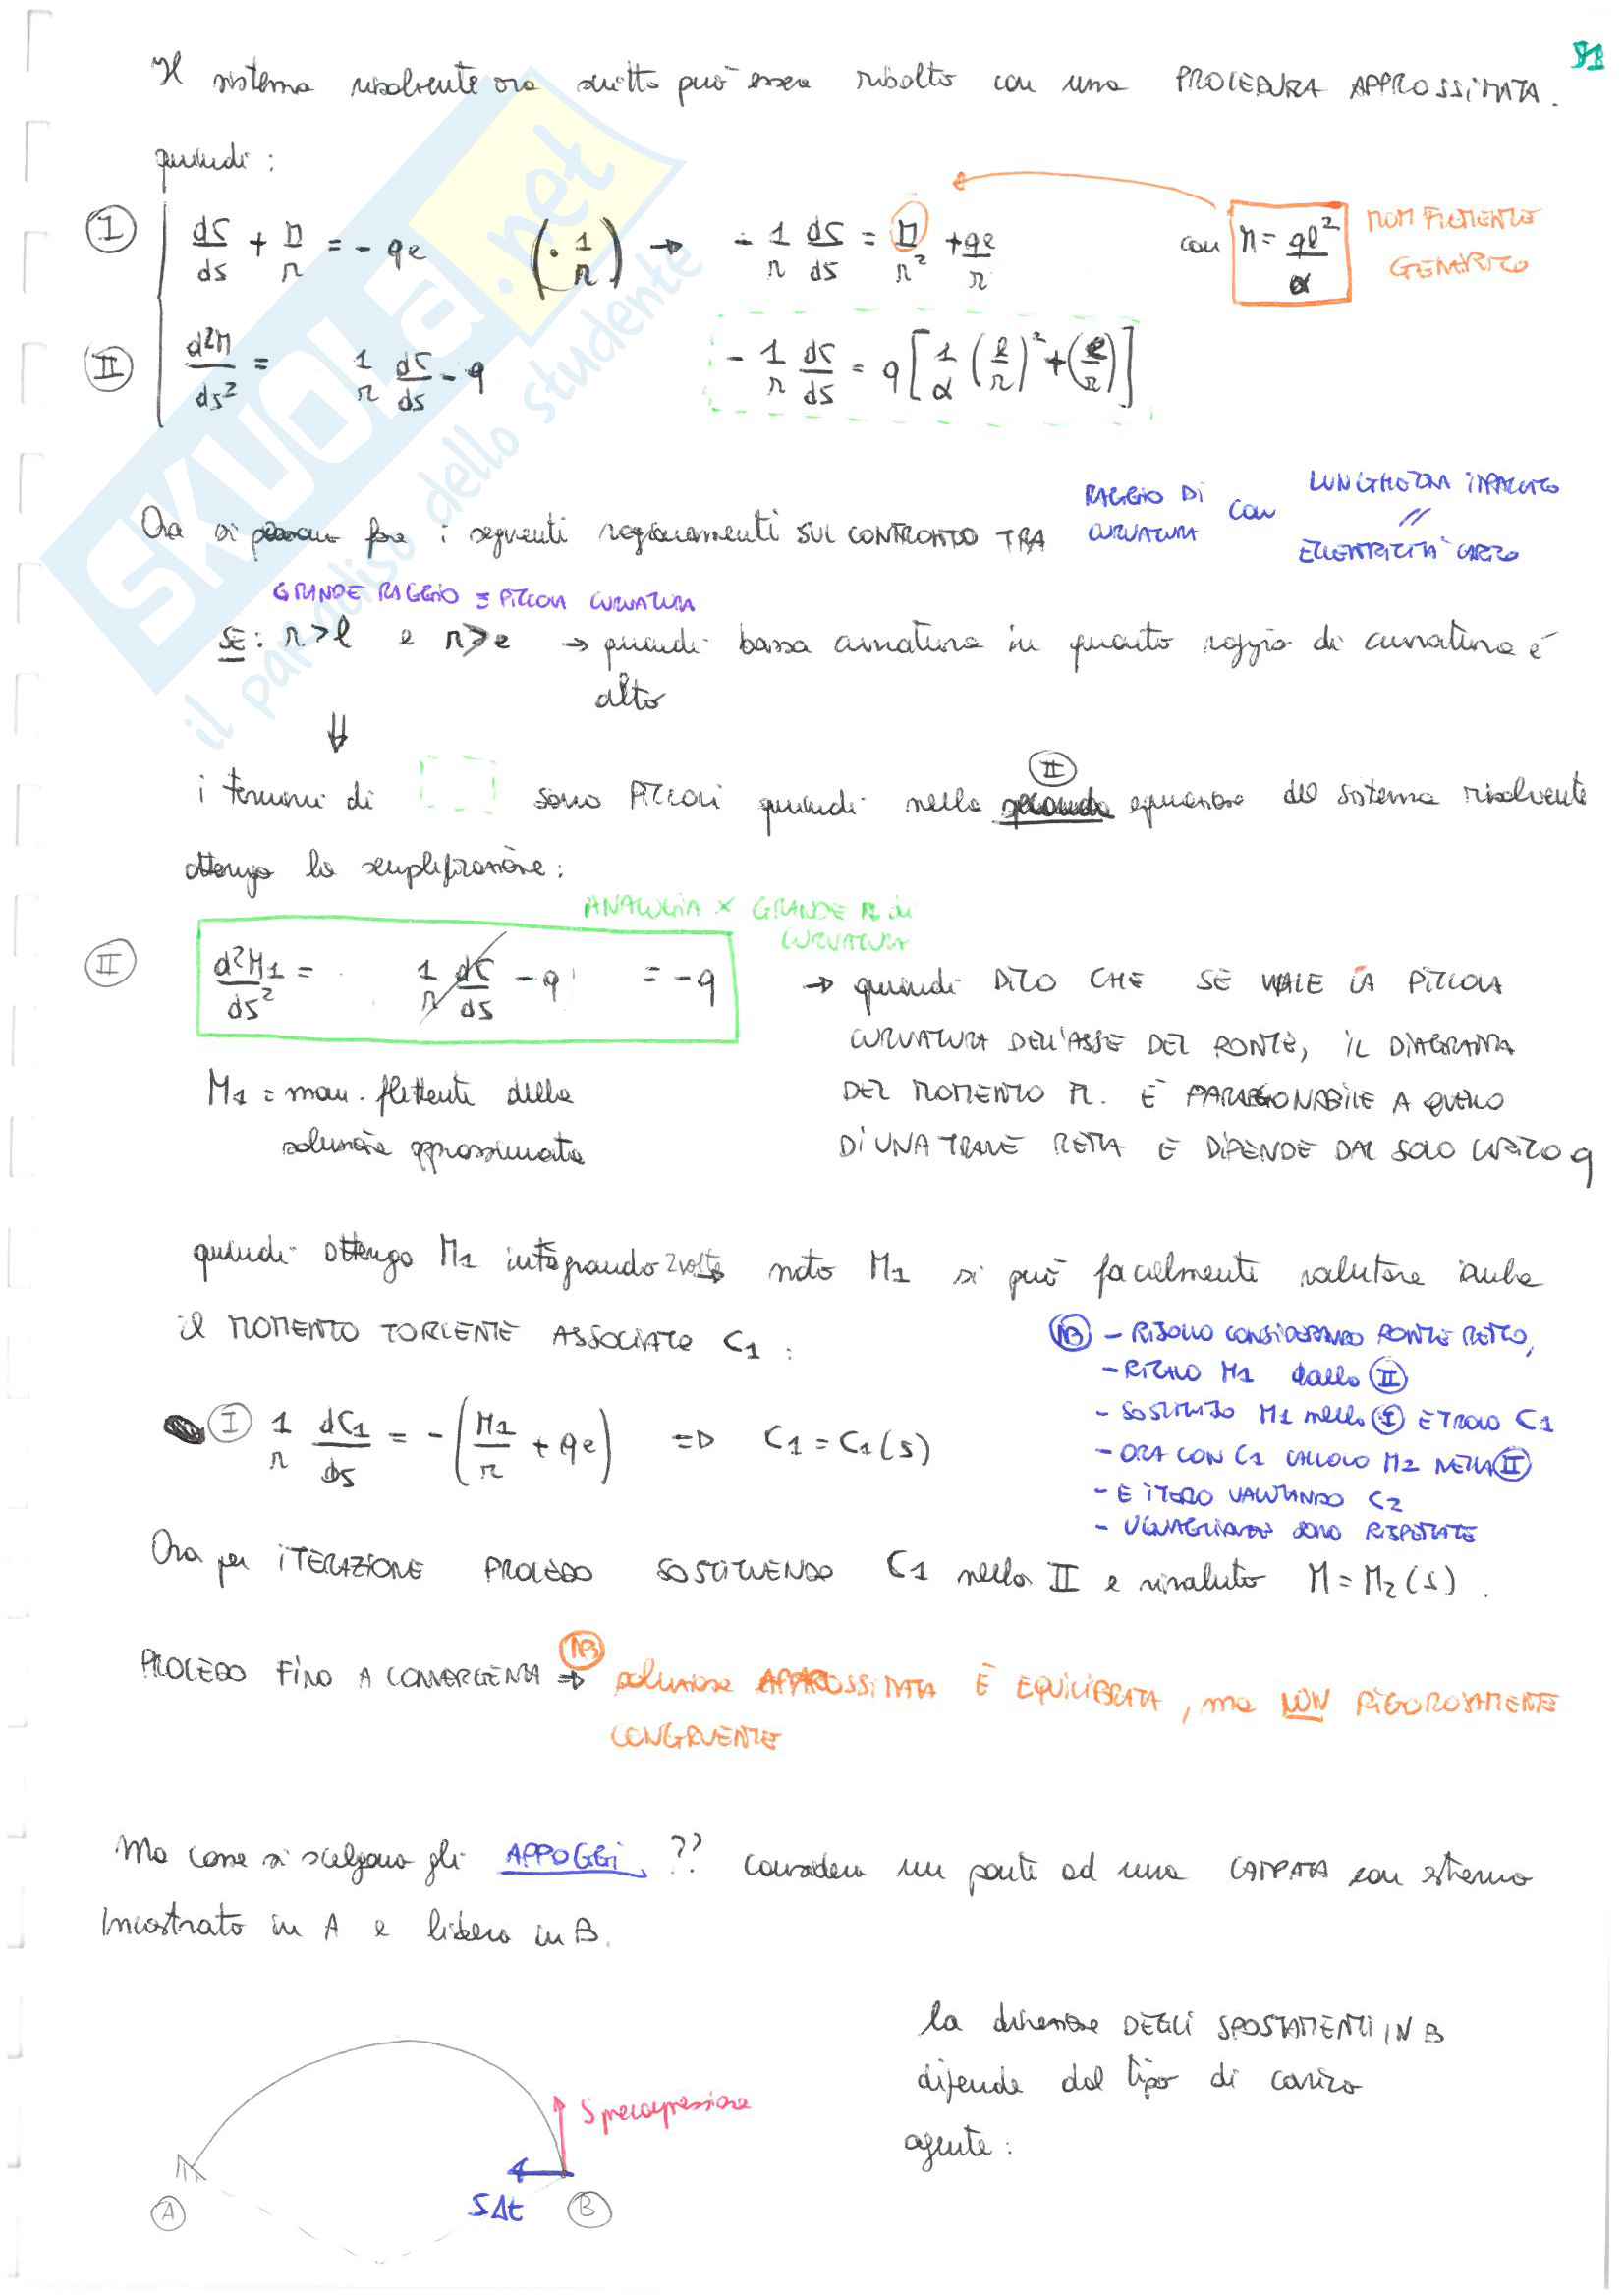 91
Il sistema risolvente ora scritto può essere risolto con una PROCEDURA APPROSSIMATA.
quindi:
I dC/ds + M/r = - qe (· 1/r) → - 1/r dC/ds = M/r² + qe/r con M = ql²/α MOMENTO GENERICO
II d²M/ds² = 1/r dC/ds - q - 1/r dC/ds = q [1/α (l/r)² + (e/r)]
Ora si possono fare i seguenti ragionamenti SUL CONFRONTO TRA RAGGIO DI CURVATURA con LUNGHEZZA IMPALCATO // ECCENTRICITÀ CARICO
GRANDE RAGGIO = PICCOLA CURVATURA
SE: r>l e r>e → quindi bassa curvatura in quanto raggio di curvatura è
alto
⇓
i termini di sono PICCOLI quindi nella seconda II equazione del sistema risolvente
ottengo la semplificazione:
ANALOGIA × GRANDE R di
CURVATURA
II d²M1/ds² = 1/r dC/ds - q = - q
→ quindi DICO CHE SE VALE LA PICCOLA
CURVATURA DELL'ASSE DEL PONTE, IL DIAGRAMMA
M1 = mom. flettente della DEL MOMENTO M. È PARAGONABILE A QUELLO
soluzione approssimata DI UNA TRAVE RETTA E DIPENDE DAL SOLO CARICO q
quindi ottengo M1 integrando 2 volte noto M1 si può facilmente valutare anche
il MOMENTO TORCENTE ASSOCIATO C1:
NB - RISOLVO CONSIDERANDO PONTE RETTO,
- RICAVO M1 dalla II
- SOSTITUISO M1 nella I E TROVO C1
- ORA CON C1 CALCOLO M2 NELLA II
- E ITERO VALUTANDO C2
- UGUAGLIANZE SONO RISPETTATE
I 1/r dC1/ds = - (M1/r + qe) ⇒ C1 = C1(s)
Ora per ITERAZIONE PROCEDO SOSTITUENDO C1 nella II e rivaluto M = M2(s).
PROCEDO FINO A CONVERGENZA ⇒ NB soluzione APPROSSIMATA È EQUILIBRATA, ma NON RIGOROSAMENTE
CONGRUENTE
Ma come si scelgono gli APPOGGI?? considero un ponte ad una CAMPATA con estremo
incastrato in A e libero in B.
la direzione DEGLI SPOSTAMENTI IN B
dipende dal tipo di carico
agente:
S precompressione
SΔt
A
B
SKUOLA.net
il paradiso dello studente